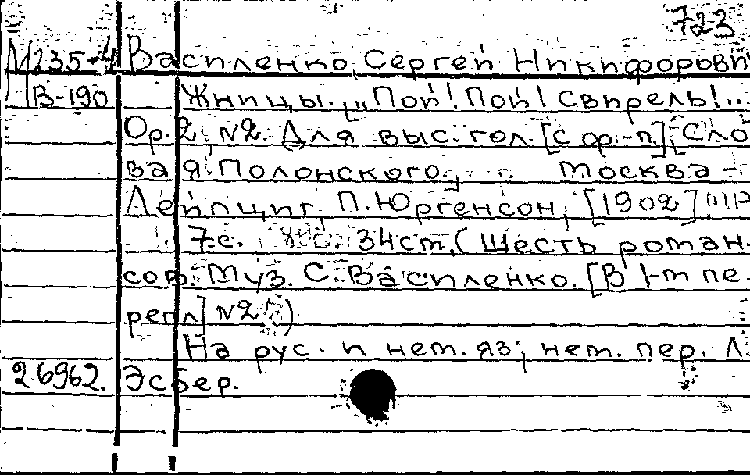 723
М235-4 Василенко, Сергей Никифорови
В-190 Жницы. „Пой! Пой! Свирель!...
Ор.2, №2. Для выс. гол. [с ф.-п.], Сло
ва Я. Полонского, Москва –
Лейпциг, П. Юргенсон, [1902]
7 с. 34 ст. (Шесть роман-
сов. Муз. С. Василенко. [В 1-т пе.
репл] №2)
На рус. и нем. яз; нем. пер. Л.
26962. Эсбер.